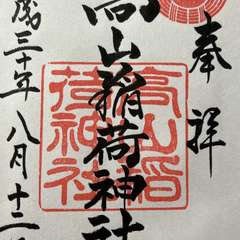 奉拝
高山稲荷神社
高山稲
荷神社
成三十年八月十二